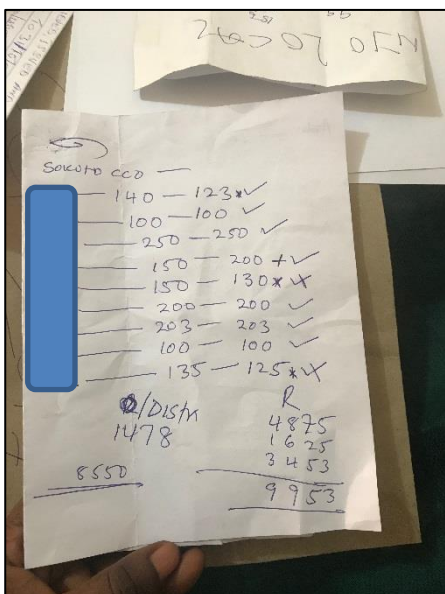 Sokoto cco —
— 140 — 123*✓
— 100 — 100 ✓
— 250 — 250 ✓
— 150 — 200 + ✓
— 150 — 130* X
— 200 — 200 ✓
— 203 — 203 ✓
— 100 — 100 ✓
— 135 — 125* X
/Distn R
1478 4875
1625
8550 3453
9953